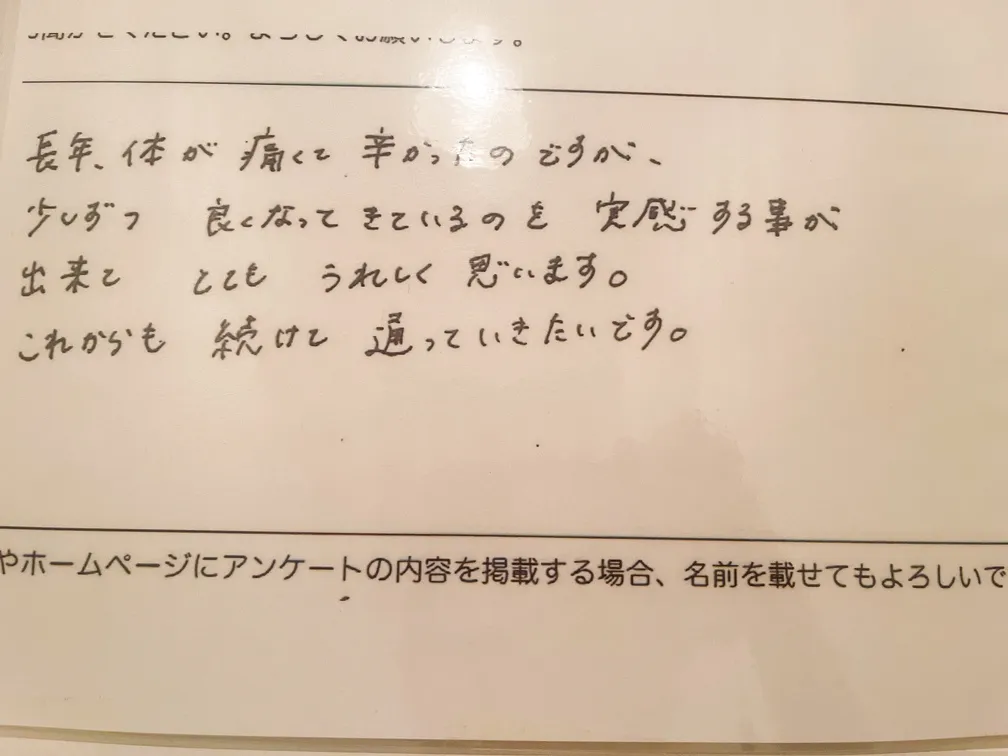 お聞かせください。よろしくお願いします。
長年、体が 痛くて 辛かったのですが、
少しずつ 良くなってきているのを 実感する事が
出来て とても うれしく 思います。
これからも 続けて 通っていきたいです。
やホームページにアンケートの内容を掲載する場合、名前を載せてもよろしいで